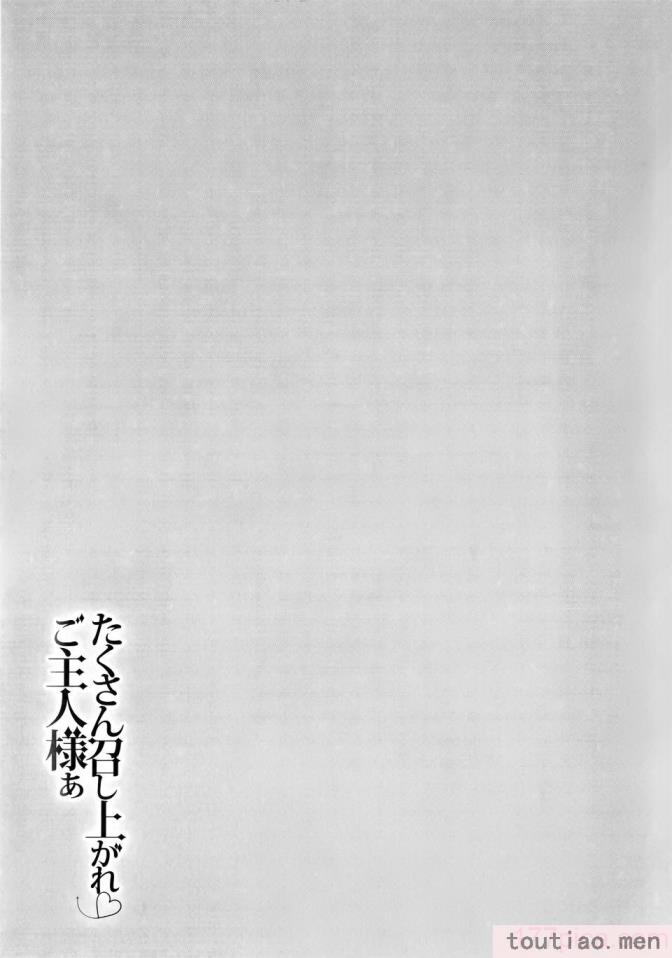 たくさん召し上がれ♡
ご主人様ぁ
toutiao.men